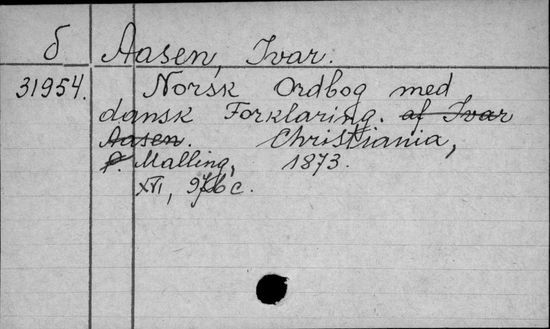 б Aasen, Ivar.
31954. Norsk Ordbog med
dansk Forklaring. af Ivar
Aasen. Christiania,
P. Malling, 1873.
XVI, 976 c.